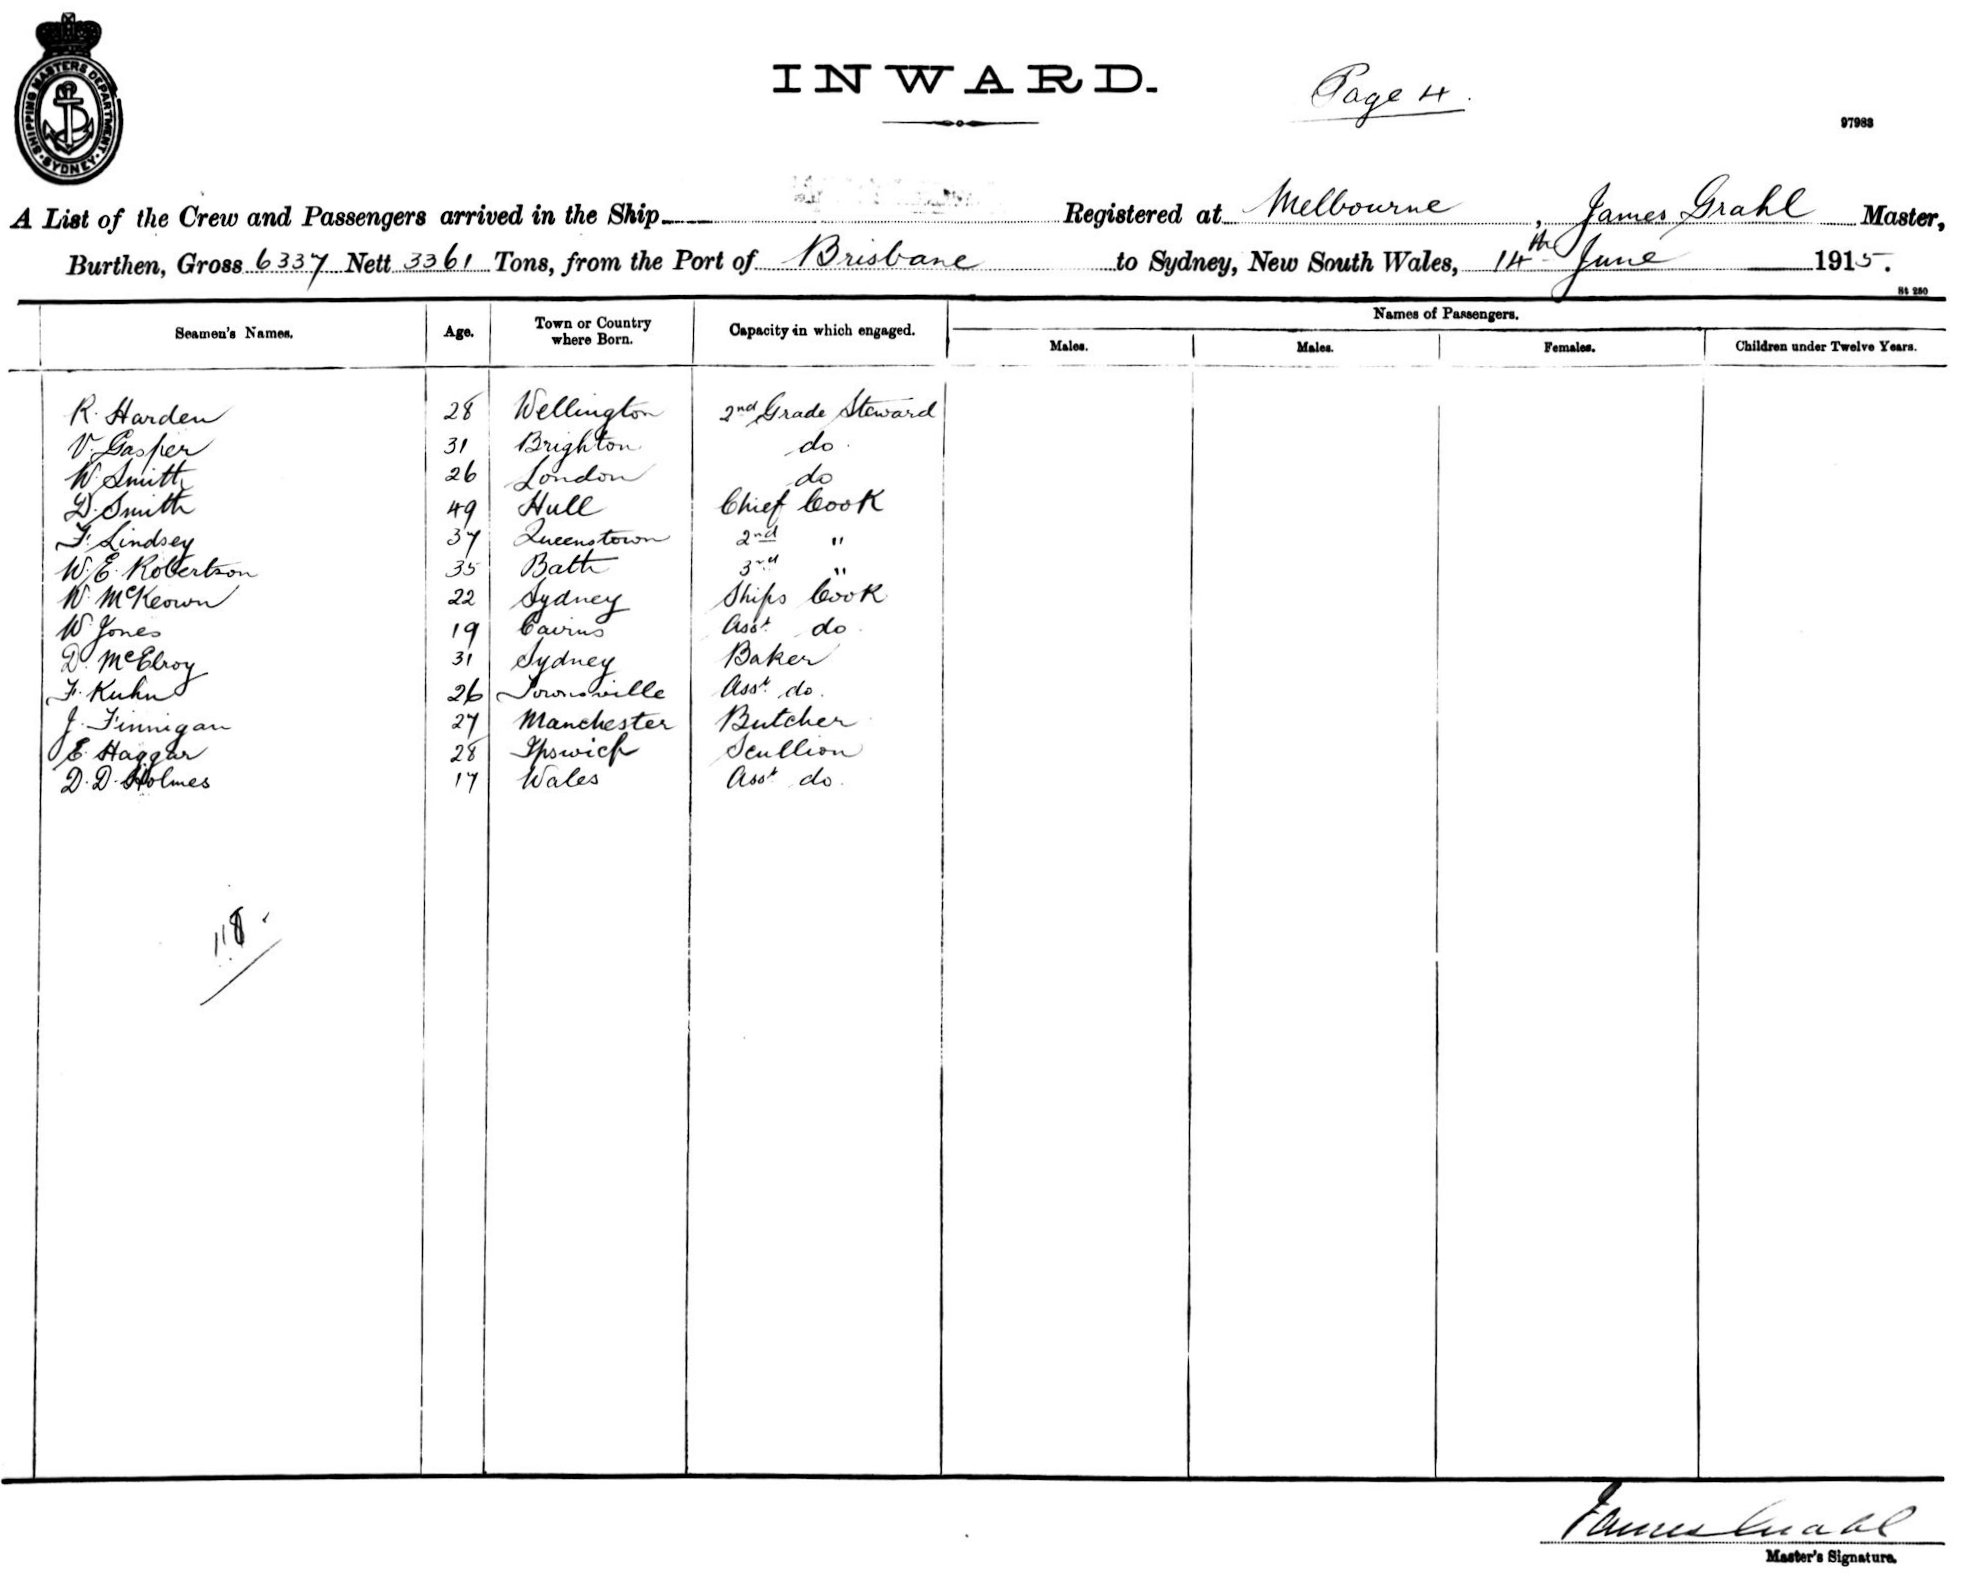 SHIPPING MASTERS DEPARTMENT
SYDNEY
INWARD.
Page 4.
97983
A List of the Crew and Passengers arrived in the Ship Registered at Melbourne, James Grahl Master,
Burthen, Gross 6337 Nett 3361 Tons, from the Port of Brisbane to Sydney, New South Wales, 14th June 1915.
St 250
Seamen's Names. Age. Town or Country where Born. Capacity in which engaged. Names of Passengers.
Males. Males. Females. Children under Twelve Years.
R. Harden 28 Wellington 2nd Grade Steward
V. Gasper 31 Brighton do.
W. Smith 26 London do
D. Smith 49 Hull Chief Cook
F. Lindsey 37 Queenstown 2nd "
W. E. Robertson 35 Bath 3rd "
W. McKeown 22 Sydney Ships Cook
W. Jones 19 Cairns Asst. do.
D. McElroy 31 Sydney Baker
F. Kuhn 26 Townsville Asst. do.
J. Finnigan 27 Manchester Butcher
E. Haggar 28 Ipswich Scullion
D. D. Holmes 17 Wales Asst do.
118.
James Grahl
Master's Signature.